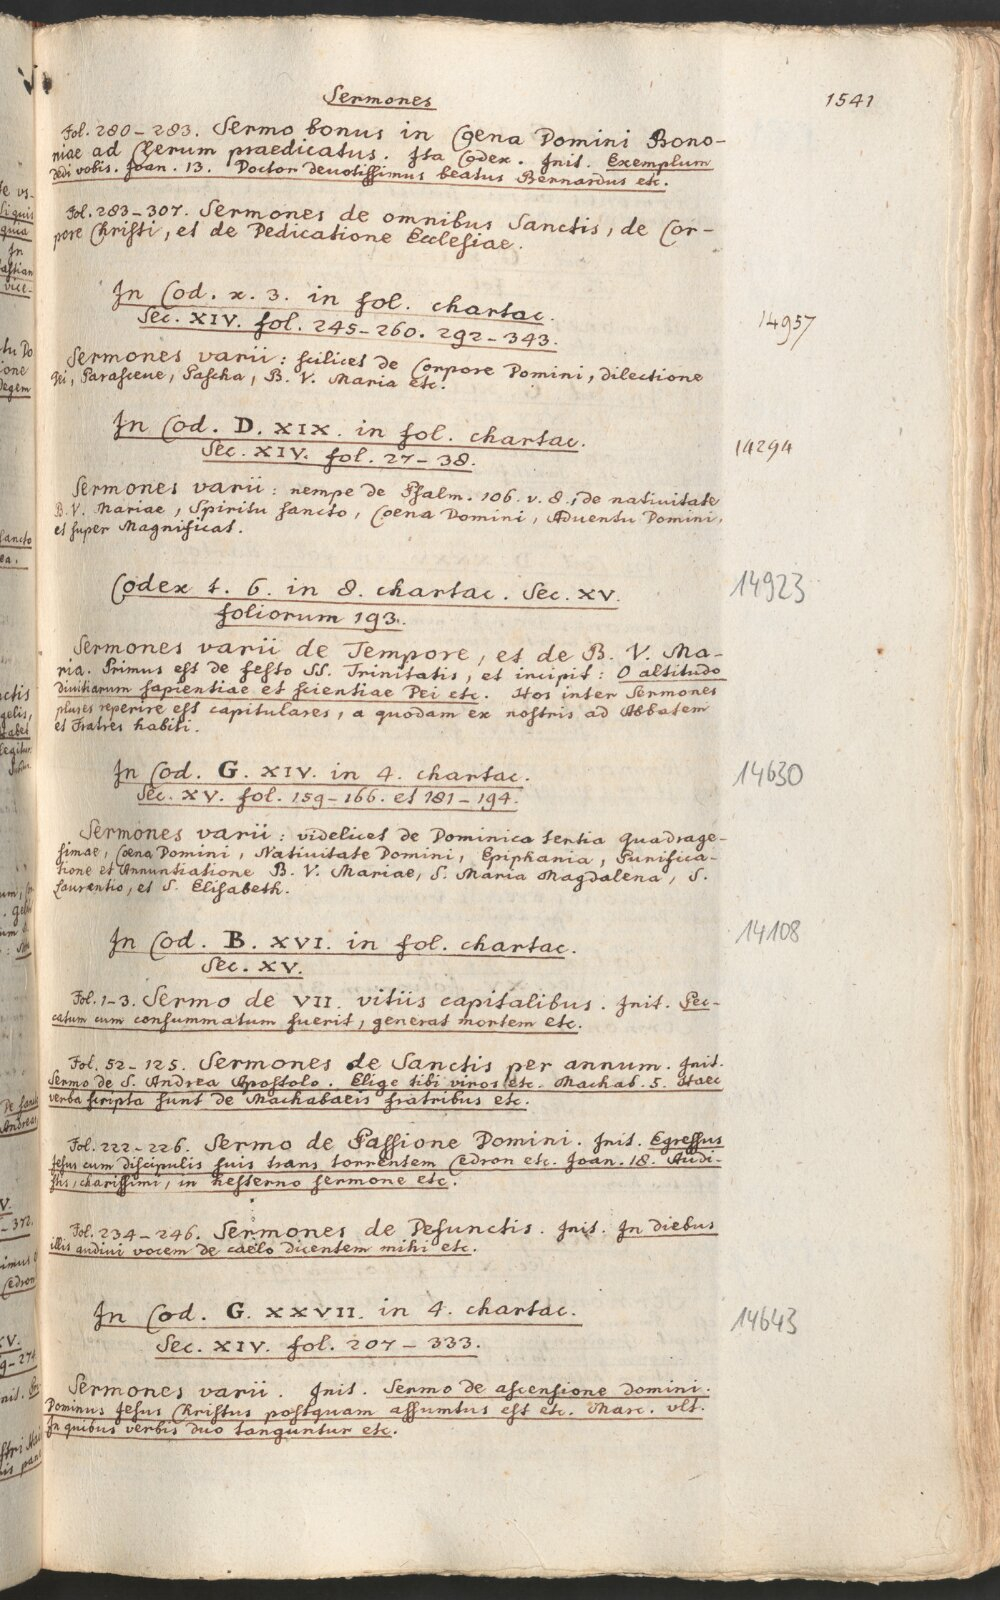 Sermones
1541
Fol. 280–283. Sermo bonus in Coena Domini Bono-
niae ad Clerum praedicatus. Ita Codex. Init. Exemplum
dedi vobis. Joan. 13. Doctor devotissimus beatus Bernardus etc.
Fol. 283–307. Sermones de omnibus Sanctis, de Cor-
pore Christi, et de Dedicatione Ecclesiae.
In Cod. x. 3. in fol. chartac.
Sec. XIV. fol. 245–260. 292–343.
14957
Sermones varii: scilicet de Corpore Domini, dilectione
Dei, Parasceue, Pascha, B. V. Maria etc.
In Cod. D. XIX. in fol. chartac.
Sec. XIV. fol. 27–38.
14294
Sermones varii: nempe de Psalm. 106. v. 8., de nativitate
B. V. Mariae, Spiritu sancto, Coena Domini, Adventu Domini,
et super Magnificat.
Codex t. 6. in 8. chartac. Sec. XV.
foliorum 193.
14923
Sermones varii de Tempore, et de B. V. Ma-
ria. Primus est de festo SS. Trinitatis, et incipit: O altitudo
divitiarum sapientiae et scientiae Dei etc. Hos inter Sermones
plures reperire est capitulares, a quodam ex nostris ad Abbatem
et Fratres habiti.
In Cod. G. XIV. in 4. chartac.
Sec. XV. fol. 159–166. et 181–194.
14630
Sermones varii: videlicet de Dominica tertia Quadrage-
simae, Coena Domini, Nativitate Domini, Epiphania, Purifica-
tione et Annuntiatione B. V. Mariae, S. Maria Magdalena, S.
Laurentio, et S. Elisabeth.
In Cod. B. XVI. in fol. chartac.
Sec. XV.
14108
Fol. 1–3. Sermo de VII. vitiis capitalibus. Init. Pec-
catum cum consummatum fuerit, generat mortem etc.
Fol. 52–125. Sermones de Sanctis per annum. Init.
Sermo de S. Andrea Apostolo. Elige tibi viros etc. Machab. 5. Haec
verba scripta sunt de Machabaeis fratribus etc.
Fol. 222–226. Sermo de Passione Domini. Init. Egressus
Jesus cum discipulis suis trans torrentem Cedron etc. Joan. 18. Audi-
stis, charissimi, in hesterno sermone etc.
Fol. 234–246. Sermones de Defunctis. Init. In diebus
illis audivi vocem de caelo dicentem mihi etc.
In Cod. G. XXVII. in 4. chartac.
Sec. XIV. fol. 207–333.
14643
Sermones varii. Init. Sermo de ascensione domini.
Dominus Jesus Christus postquam assumtus est etc. Marc. vlt.
In quibus verbis duo tanguntur etc.